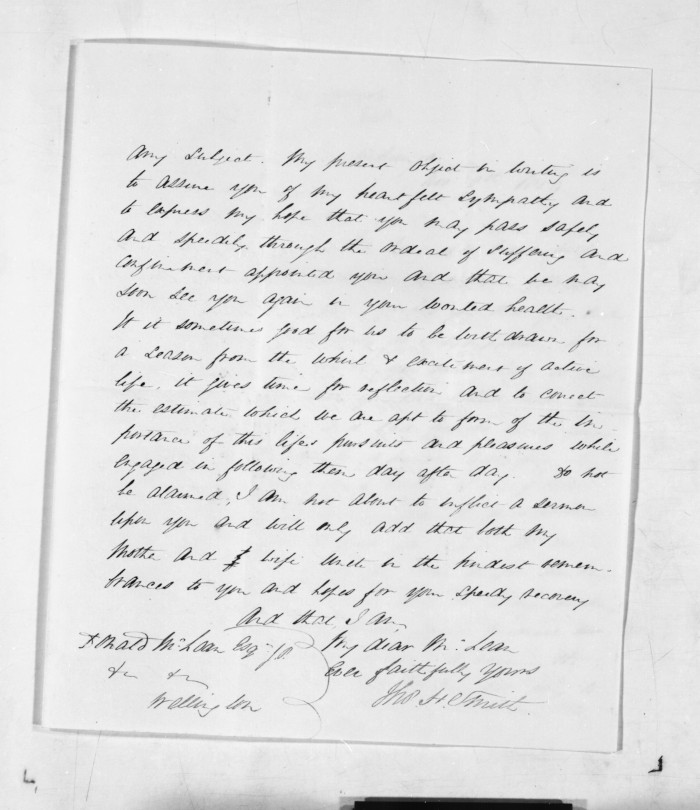 any subject. My present object in writing is
to assure you of my heartfelt sympathy and
to express my hope that you may pass safely
and speedily through the ordeal of suffering and
confinement appointed you and that we may
soon see you again in your wonted health.
It is sometimes good for us to be withdrawn for
a season from the whirl & excitement of active
life, it gives time for reflection and to correct
the estimate which we are apt to form of the im
portance of this life's pursuits and pleasures while
engaged in following them day after day. Do not
be alarmed, I am not about to inflict a sermon
upon you and will only add that both my
Mother and wife unite in the kindest remem-
brances to you and hopes for your speedy recovery
And that I am
My dear McLean
Ever faithfully Yours
Thos H. Smith
Donald McLean Esqr
&c &c
Wellington